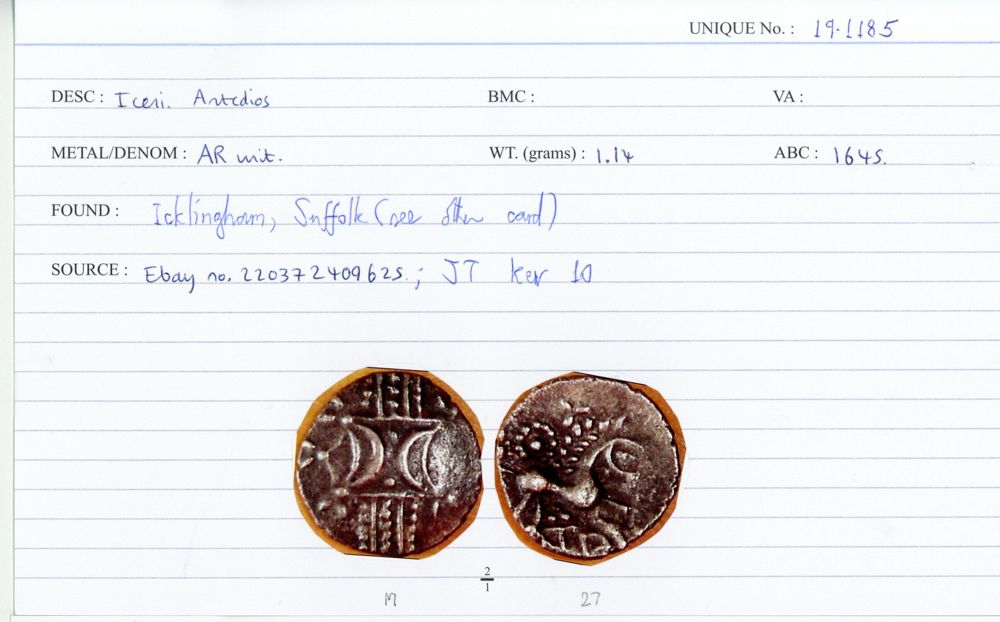 UNIQUE No. : 19.1185
DESC : Iceni. Antedios BMC : VA :
METAL/DENOM : AR unit. WT. (grams) : 1.14 ABC : 1645.
FOUND : Icklingham, Suffolk (see other card)
SOURCE : Ebay no. 220372409625. ; JT Kew 10
2
1
M 27